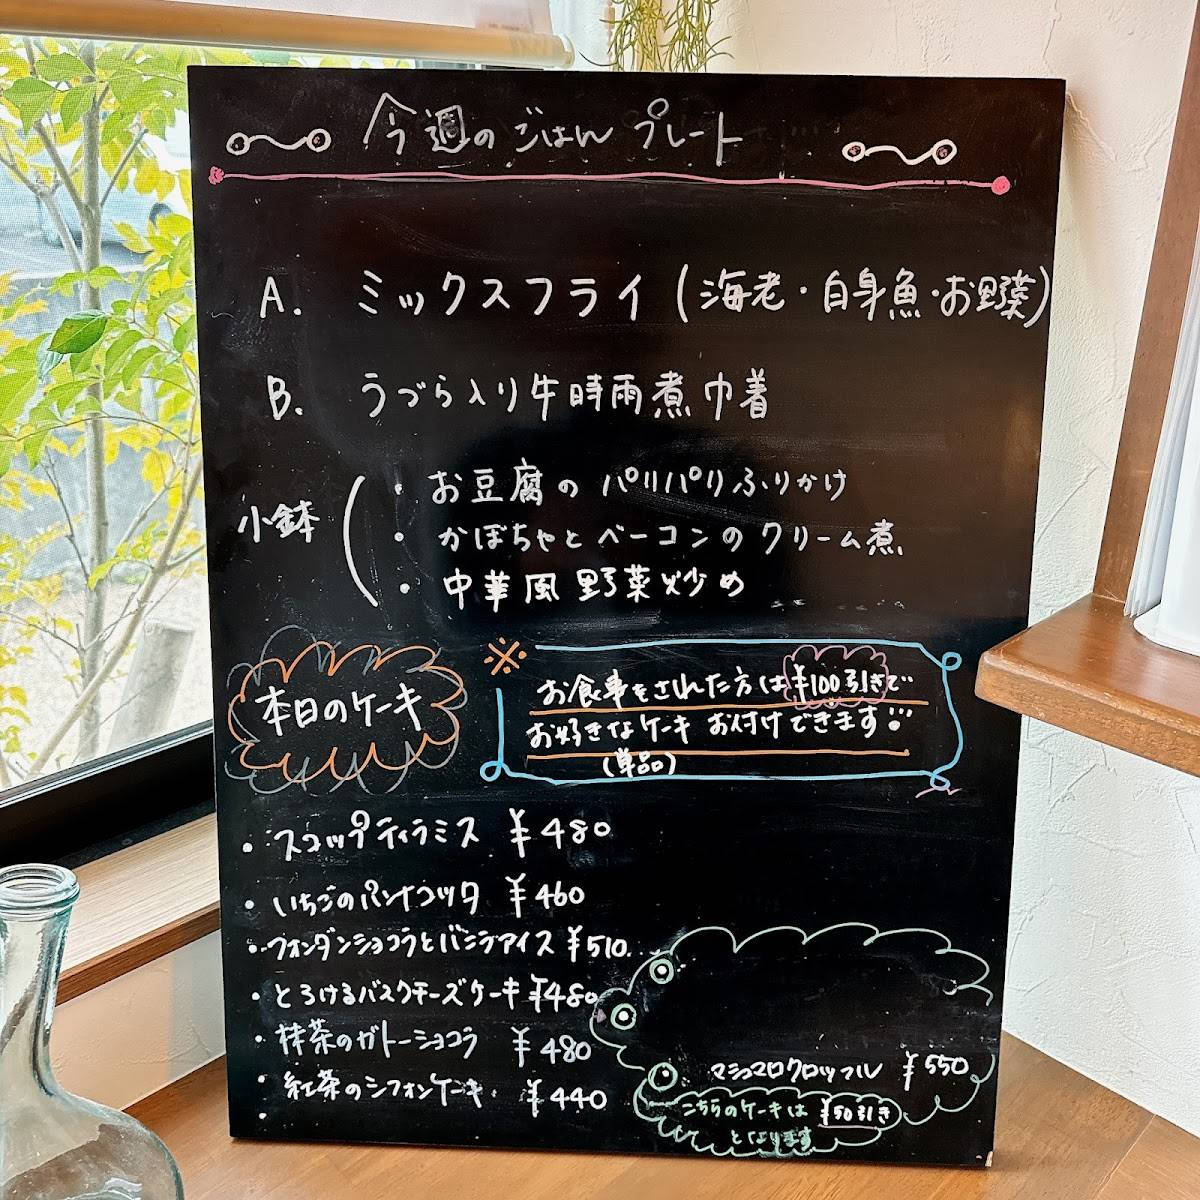 今週のごはんプレート
A. ミックスフライ(海老・白身魚・お野菜)
B. うづら入り牛時雨煮巾着
小鉢
・お豆腐のパリパリふりかけ
・かぼちゃとベーコンのクリーム煮
・中華風野菜炒め
本日のケーキ
※
お食事をされた方は¥100引きで
お好きなケーキお付けできます!
(単品)
・スコップティラミス ¥480
・いちごのパンナコッタ ¥460
・フォンダンショコラとバニラアイス ¥510
・とろけるバスクチーズケーキ ¥480
・抹茶のガトーショコラ ¥480
・紅茶のシフォンケーキ ¥440
・
マシュマロクロッフル ¥550
こちらのケーキは¥50引き
となります